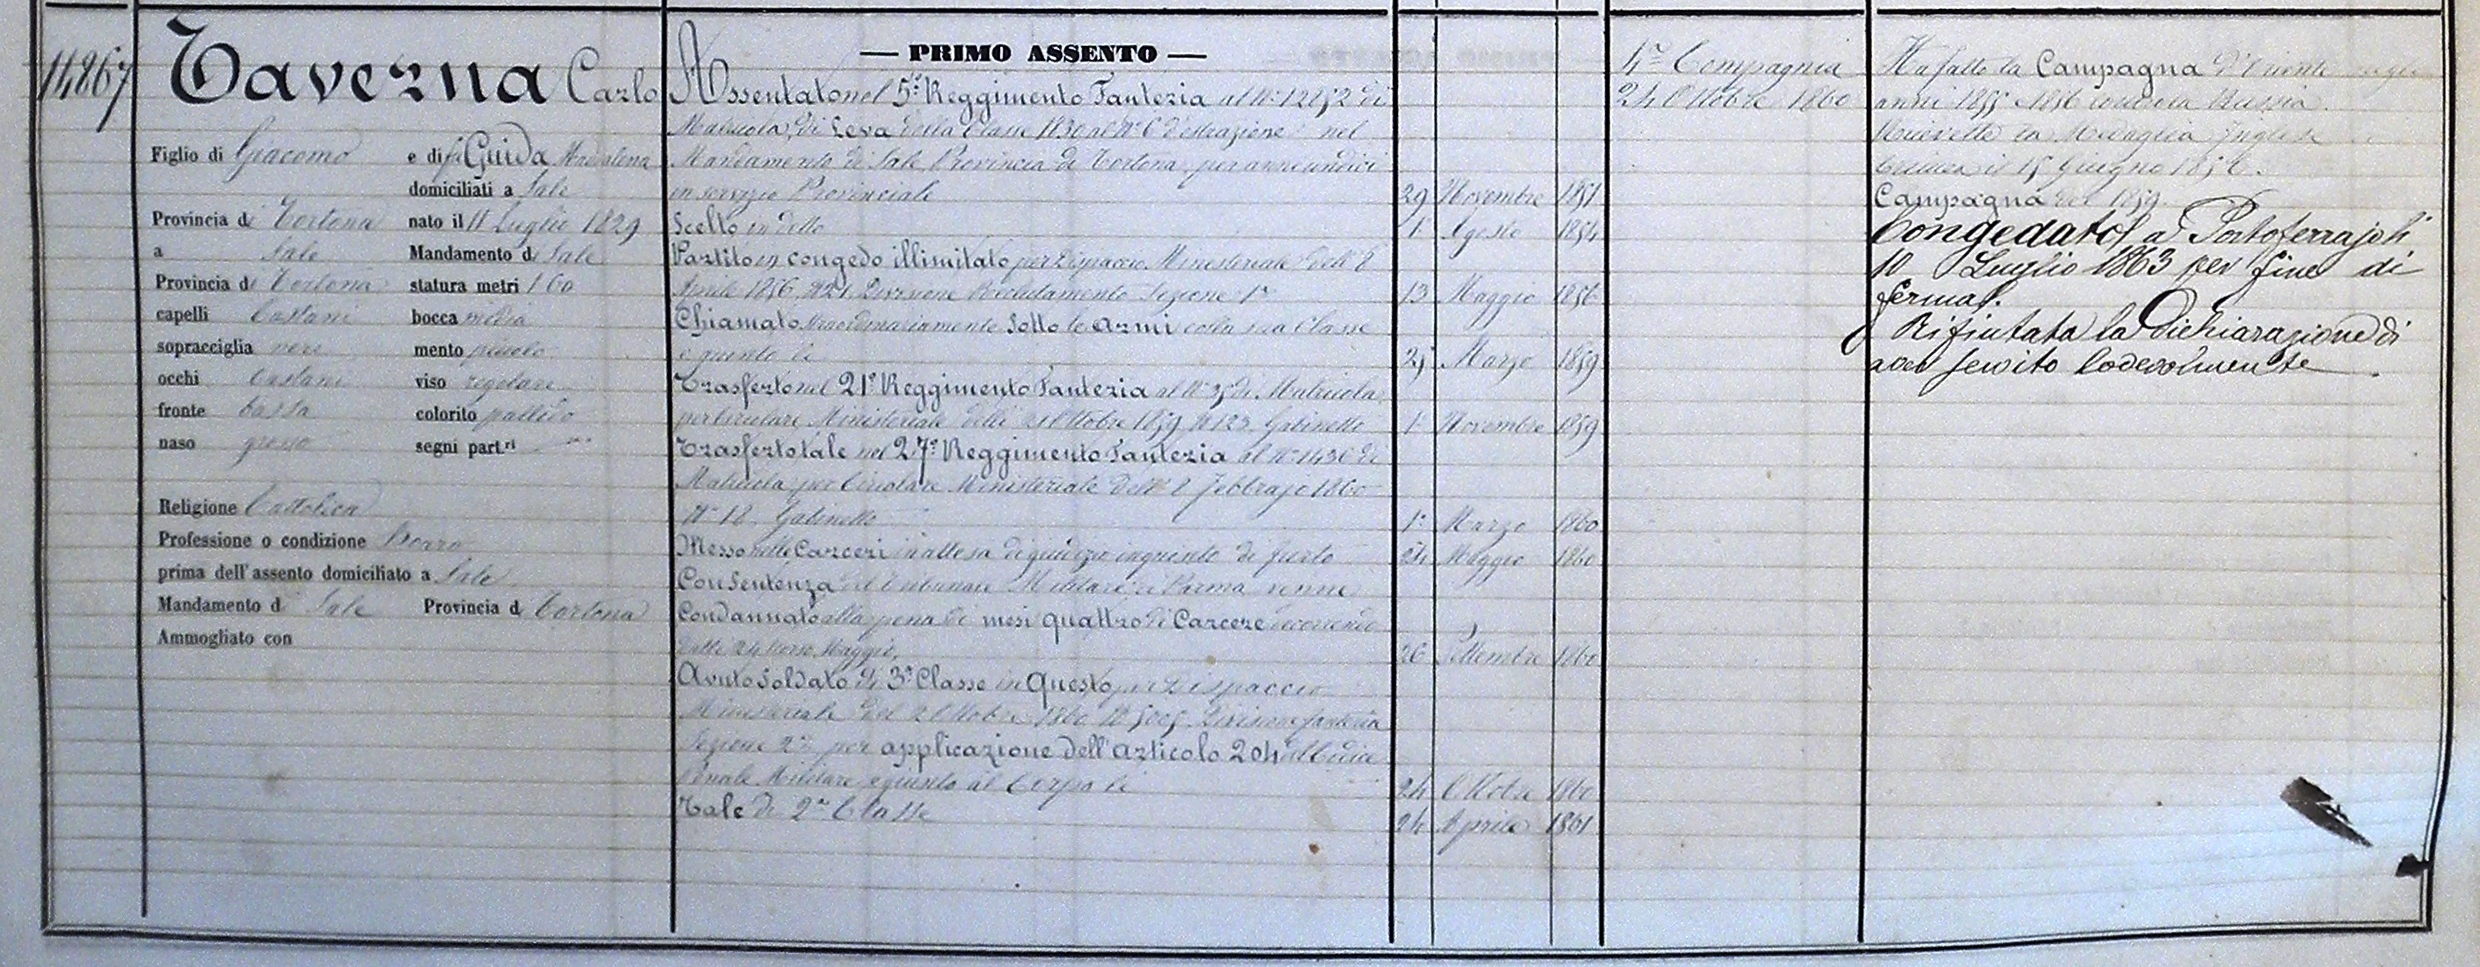 14867
Taverna Carlo
Figlio di Giacomo e di fu Guida Madalena
domiciliati a Sale
Provincia di Tortona nato il 11 Luglio 1829
a Sale Mandamento di Sale
Provincia di Tortona statura metri 1 60
capelli Castani bocca media
sopracciglia nere mento piccolo
occhi Castani viso regolare
fronte bassa colorito pallido
naso grosso segni part.ri
Religione Cattolica
Professione o condizione
prima dell'assento domiciliato a Sale
Mandamento di Sale Provincia di Tortona
Ammogliato con
— PRIMO ASSENTO —
Assentato nel 5° Reggimento Fanteria al N° 12252 di
Matricola, di Leva della Classe 1830 al N° 6 d'estrazione nel
Mandamento di Sale Provincia di Tortona per anni undici
in servizio Provinciale 29 Novembre 1851
Scelto in detto 1° Agosto 1854
Partito in congedo illimitato per Dispaccio Ministeriale dell' 8
Aprile 1856 N° 21 Divisione Reclutamento Sezione 1ª 13 Maggio 1856
Chiamato straordinariamente sotto le armi colla sua Classe
e giunto li 25 Marzo 1859
Trasferto nel 21° Reggimento Fanteria al N° 35 di Matricola
per Circolare Ministeriale delli 21 Ottobre 1859 N° 123 Gabinetto 1° Novembre 1859
Trasferto tale nel 27° Reggimento Fanteria al N° 1436 di
Matricola per Circolare Ministeriale dell' 8 Febbrajo 1860
N° 18 Gabinetto 1° Marzo 1860
Messo nelle Carceri in attesa di giudizio inquinto di furto 24 Maggio 1860
Con Sentenza del Tribunale Militare di Parma venne
Condannato alla pena di mesi quattro di Carcere decorrendo
dalli 24 scorso Maggio, 26 Settembre 1860
Avuto Soldato di 3ª Classe in Questo per Dispaccio
Ministeriale del 2 Ottobre 1860 N° 5005 Divisione fanteria
Sezione 2ª per applicazione dell'articolo 204 del Codice
Penale Militare e giunto al Corpo li 24 Ottobre 1860
Tale di 2ª Classe 24 Aprile 1861
4ª Compagnia
24 Ottobre 1860
Ha fatto la Campagna d'Oriente negli
anni 1855 e 1856 contro la Russia.
Ricevette la Medaglia Inglese
Crimea il 15 Giugno 1856.
Campagna del 1859.
Congedato a Portoferrajo li
10 Luglio 1863 per fine di
ferma.
Rifiutata la Dichiarazione di
aver servito lodevolmente.